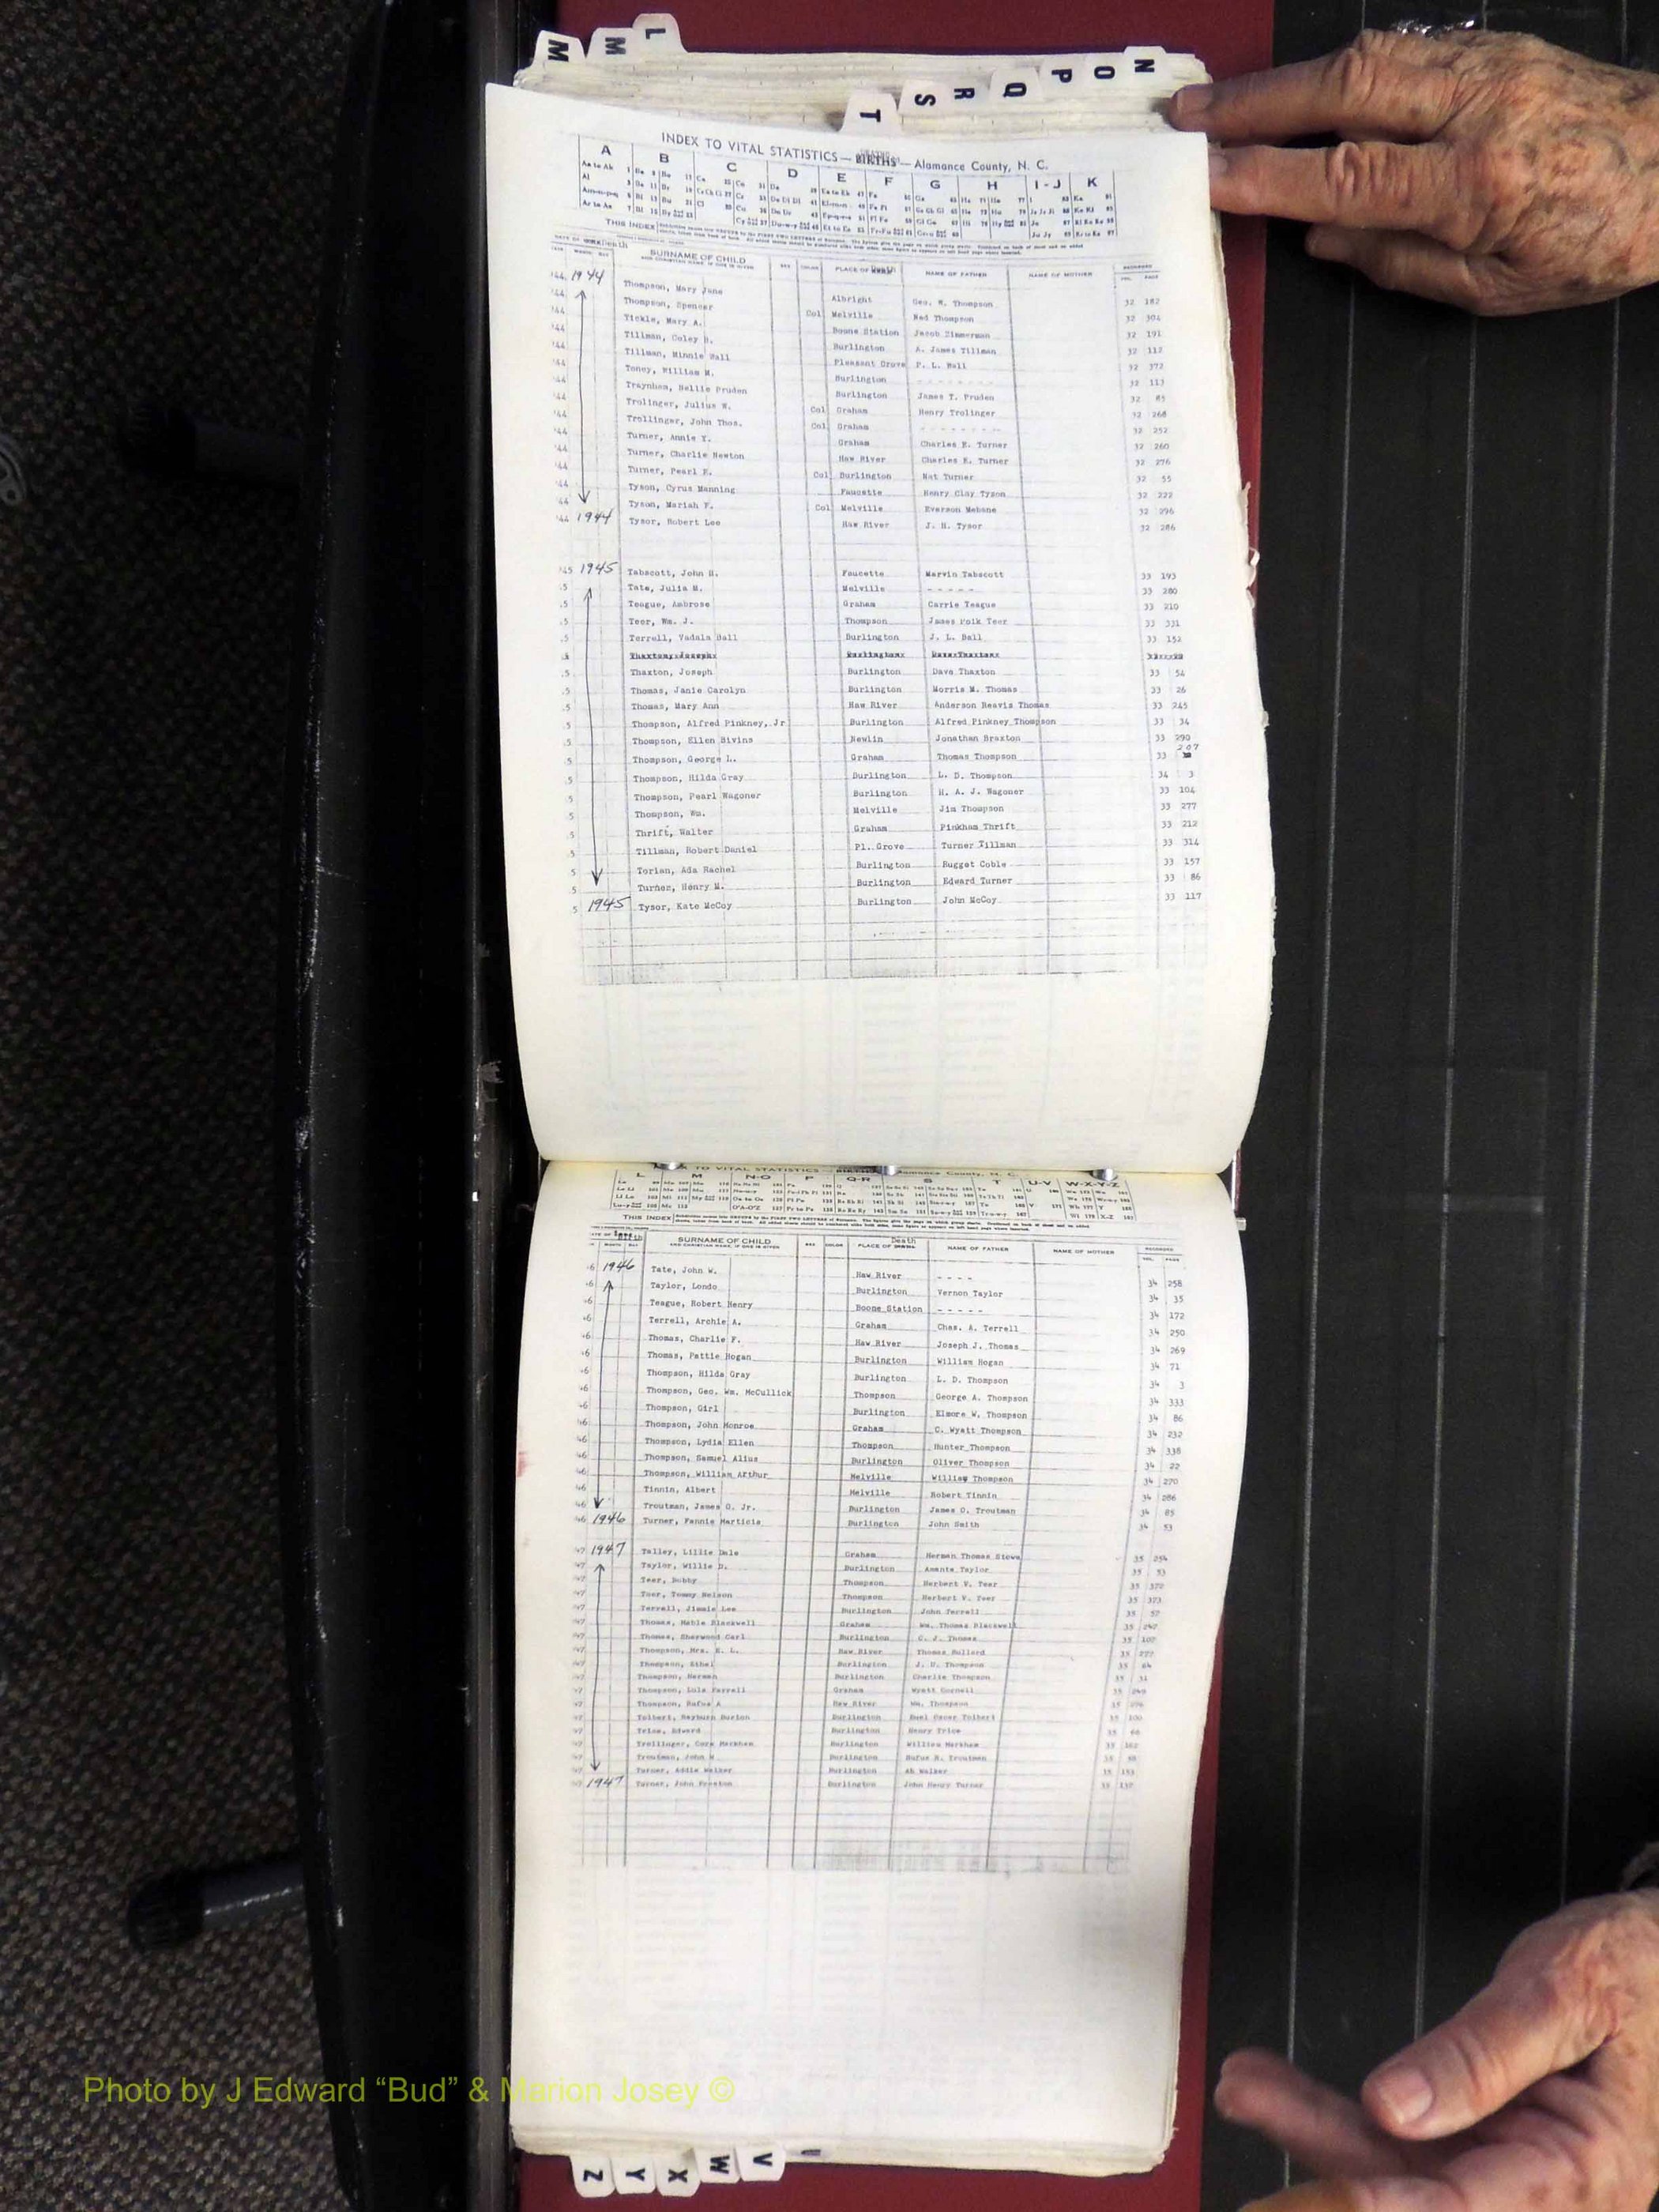 L
M
M
N
O
P
Q
R
S
T
INDEX TO VITAL STATISTICS — BIRTHS — Alamance County, N. C.
A B C D E F G H I - J K
THIS INDEX
SURNAME OF CHILD PLACE OF Death NAME OF FATHER NAME OF MOTHER RECORDED
1944 Thompson, Mary Jane Albright Geo. W. Thompson 32 182
Thompson, Spencer Col Melville Ned Thompson 32 304
Tickle, Mary A. Boone Station Jacob Zimmerman 32 191
Tillman, Coley B. Burlington A. James Tillman 32 112
Tillman, Minnie Wall Pleasant Grove P. L. Wall 32 372
Toney, William M. Burlington - - - - - - - - 32 113
Traynham, Nellie Pruden Burlington James T. Pruden 32 85
Trolinger, Julius W. Col Graham Henry Trolinger 32 268
Trollinger, John Thos. Col Graham - - - - - - - - 32 252
Turner, Annie Y. Graham Charles E. Turner 32 260
Turner, Charlie Newton Haw River Charles E. Turner 32 276
Turner, Pearl E. Col Burlington Nat Turner 32 55
Tyson, Cyrus Manning Faucette Henry Clay Tyson 32 222
Tyson, Mariah F. Col Melville Everson Mebane 32 296
1944 Tysor, Robert Lee Haw River J. H. Tysor 32 286
1945 Tabscott, John H. Faucette Marvin Tabscott 33 193
Tate, Julia M. Melville - - - - - 33 280
Teague, Ambrose Graham Carrie Teague 33 210
Teer, Wm. J. Thompson James Polk Teer 33 331
Terrell, Vadala Ball Burlington J. L. Ball 33 152
Thaxton, Joseph Burlington Dave Thaxton 33 54
Thomas, Janie Carolyn Burlington Morris M. Thomas 33 26
Thomas, Mary Ann Haw River Anderson Reavis Thomas 33 245
Thompson, Alfred Pinkney, Jr Burlington Alfred Pinkney Thompson 33 34
Thompson, Ellen Bivins Newlin Jonathan Braxton 33 290
Thompson, George L. Graham Thomas Thompson 33 207
Thompson, Hilda Gray Burlington L. D. Thompson 34 3
Thompson, Pearl Wagoner Burlington H. A. J. Wagoner 33 104
Thompson, Wm. Melville Jim Thompson 33 277
Thrift, Walter Graham Pinkham Thrift 33 212
Tillman, Robert Daniel Pl. Grove Turner Tillman 33 314
Torian, Ada Rachel Burlington Rugget Coble 33 157
Turner, Henry M. Burlington Edward Turner 33 86
1945 Tysor, Kate McCoy Burlington John McCoy 33 117
TO VITAL STATISTICS — Alamance County, N. C.
L M N-O P Q-R S T U-V W-X-Y-Z
THIS INDEX
SURNAME OF CHILD PLACE OF Death NAME OF FATHER NAME OF MOTHER RECORDED
1946 Tate, John W. Haw River - - - - 34 258
Taylor, Londo Burlington Vernon Taylor 34 35
Teague, Robert Henry Boone Station - - - - - 34 172
Terrell, Archie A. Graham Chas. A. Terrell 34 250
Thomas, Charlie F. Haw River Joseph J. Thomas 34 269
Thomas, Pattie Hogan Burlington William Hogan 34 71
Thompson, Hilda Gray Burlington L. D. Thompson 34 3
Thompson, Geo. Wm. McCullick Thompson George A. Thompson 34 333
Thompson, Girl Burlington Elmore W. Thompson 34 86
Thompson, John Monroe Graham C. Wyatt Thompson 34 232
Thompson, Lydia Ellen Thompson Hunter Thompson 34 338
Thompson, Samuel Alius Burlington Oliver Thompson 34 22
Thompson, William Arthur Melville William Thompson 34 270
Tinnin, Albert Melville Robert Tinnin 34 286
Troutman, James O. Jr. Burlington James O. Troutman 34 85
1946 Turner, Fannie Marticia Burlington John Smith 34 53
1947 Talley, Lillie Dale Graham Herman Thomas Stowe 35 254
Taylor, Willie D. Burlington Amanta Taylor 35 53
Teer, Bobby Thompson Herbert V. Teer 35 372
Teer, Tommy Nelson Thompson Herbert V. Teer 35 373
Terrell, Jimmie Lee Burlington John Terrell 35 57
Thomas, Mable Blackwell Graham Wm. Thomas Blackwell 35 247
Thomas, Sherwood Carl Burlington C. J. Thomas 35 107
Thompson, Mrs. E. L. Haw River Thomas Bullard 35 277
Thompson, Ethel Burlington J. U. Thompson 35 64
Thompson, Herman Burlington Charlie Thompson 35 31
Thompson, Lula Ferrell Graham Wyatt 35 249
Thompson, Rufus A Haw River Wm. Thompson 35
Tolbert, Rayburn Burton Burlington Buel Oscar Tolbert 35 100
Trice, Edward Burlington Henry Trice 35 66
Trollinger, Cora Markham Burlington William Markham 35 162
Troutman, John M Burlington Rufus R. Troutman 35
Turner, Addie Walker Burlington Ab Walker 35 153
1947 Turner, John Preston Burlington John Henry Turner 35 137
Photo by J Edward “Bud” & Marion Josey ©
Z
Y
X
W
V